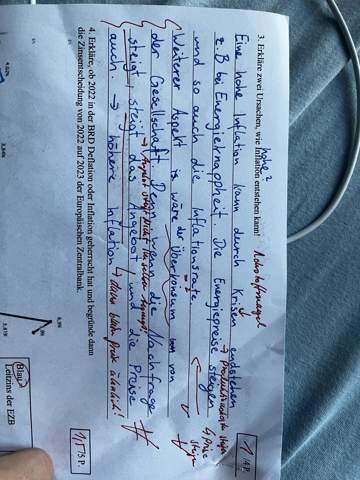 3. Erkläre zwei Ursachen, wie Inflation entstehen kann!
hohe?
Rohstoffmangel
1 /4 P.
Eine hohe Inflation kann durch Krisen endstehen
z.B bei Energieknappheit. Die Energiepreise steigen
→ Produktionskosten steigen
↳ Preise steigen
und so auch die Inflationsrate
Weiterer Aspekt wäre der Überkonsum von
der Gesellschaft. Denn wenn die Nachfrage
steigt, steigt das Angebot und die Preise
→ Angebot steigt nicht
auch. → höhere Inflation
↳ dann bleibt Preis ähnlich!
1,5 P.
4. Erkläre, ob 2022 in der BRD Deflation oder Inflation geherrscht hat und begründe dann
die Zinsentscheidung von 2022 auf 2023 der Europäischen Zentralbank.
Blau:
Leitzins der EZB